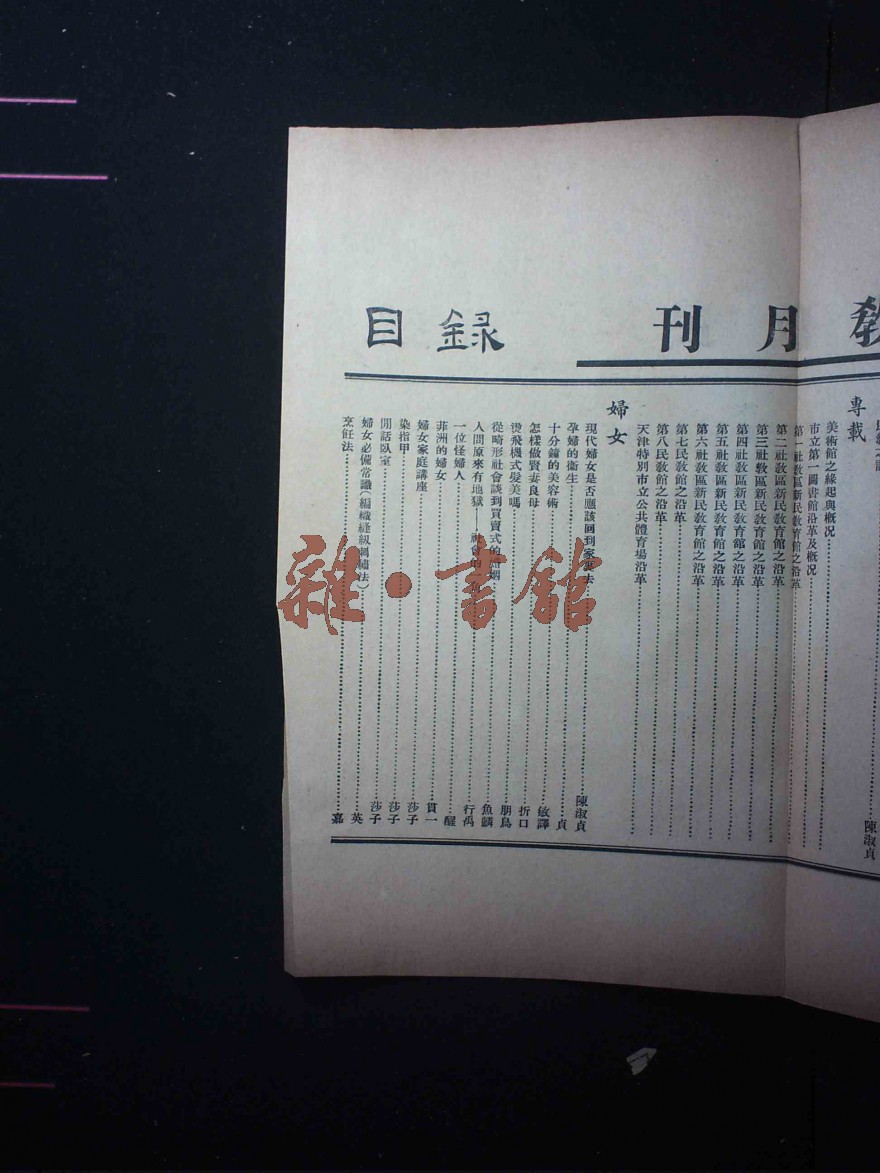 教月刊
目錄
陳淑貞
專載
美術館之緣起與概况
市立第一圖書館沿革及概况
第一社教區新民教育館之沿革
第二社教區新民教育館之沿革
第三社教區新民教育館之沿革
第四社教區新民教育館之沿革
第五社教區新民教育館之沿革
第六社教區新民教育館之沿革
第七民教館之沿革
第八民教館之沿革
天津特別市立公共體育場沿革
婦女
現代婦女是否應該回到家裏去 陳淑貞
孕婦的衞生 貞
十分鐘的美容術 敏譯
怎樣做賢妻良母 折口
燙飛機式髮美嗎 朋鳥
從畸形社會談到買賣式的婚姻 魚麟
人間原來有地獄——社會的 行禹
一位怪婦人 醒
菲洲的婦女 貫一
婦女家庭講座 莎子
染指甲 莎子
閒話臥室 莎子
婦女必備常識(編織縫紉刺繡法) 英
烹飪法 嘉
雜·書館